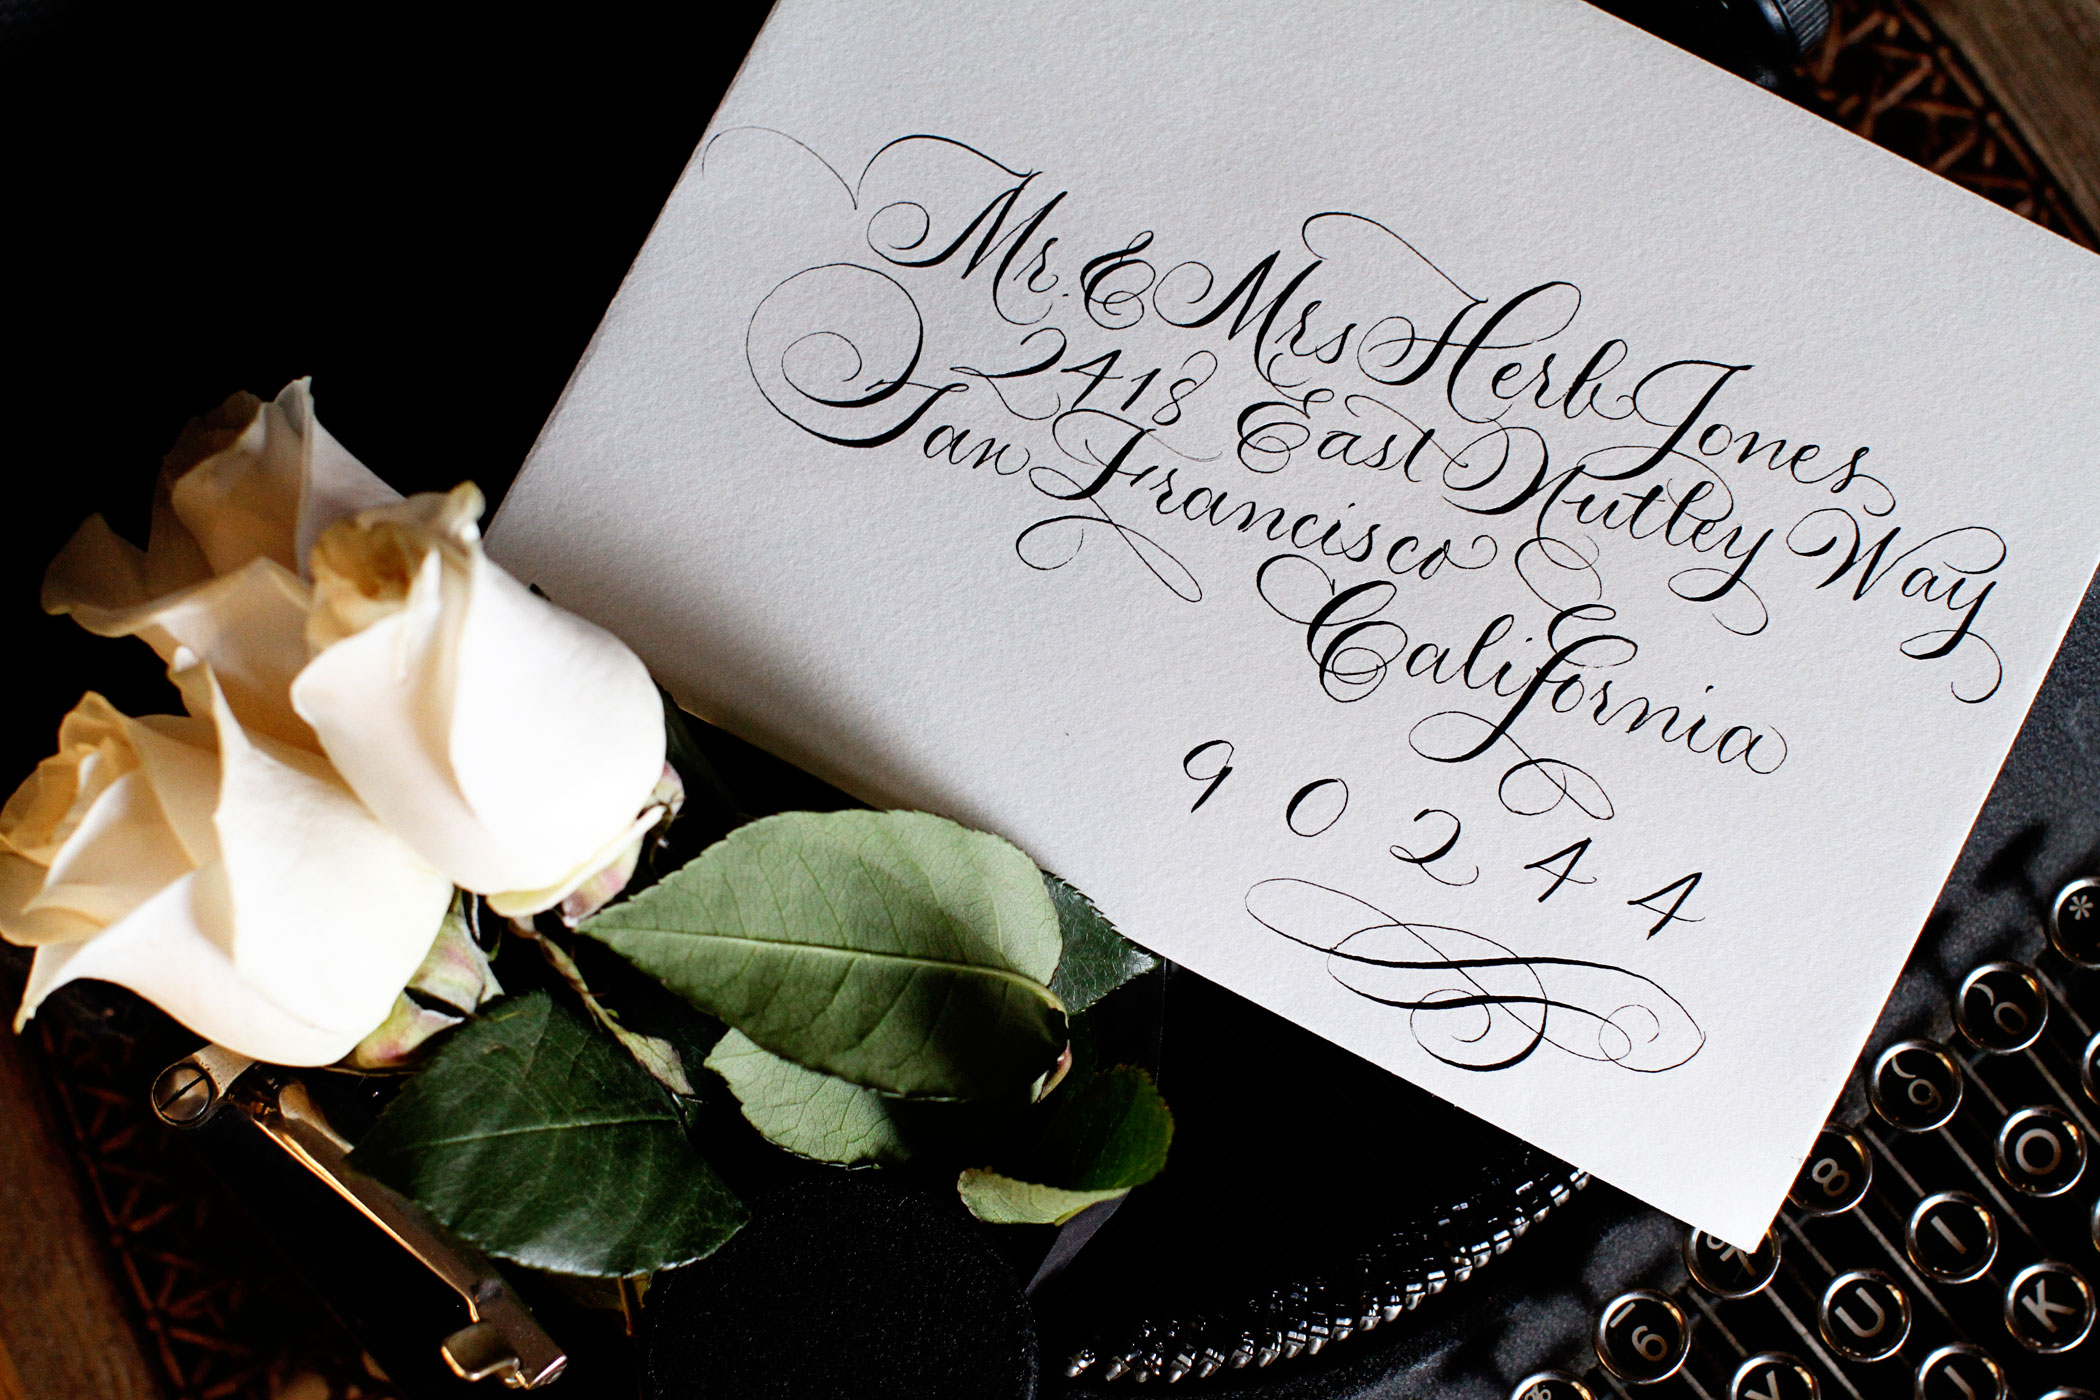 Mr. & Mrs Herb Jones
2418 East Nutley Way
San Francisco
California
90244
*
9
8
7
6
O
I
U
K
Y
J